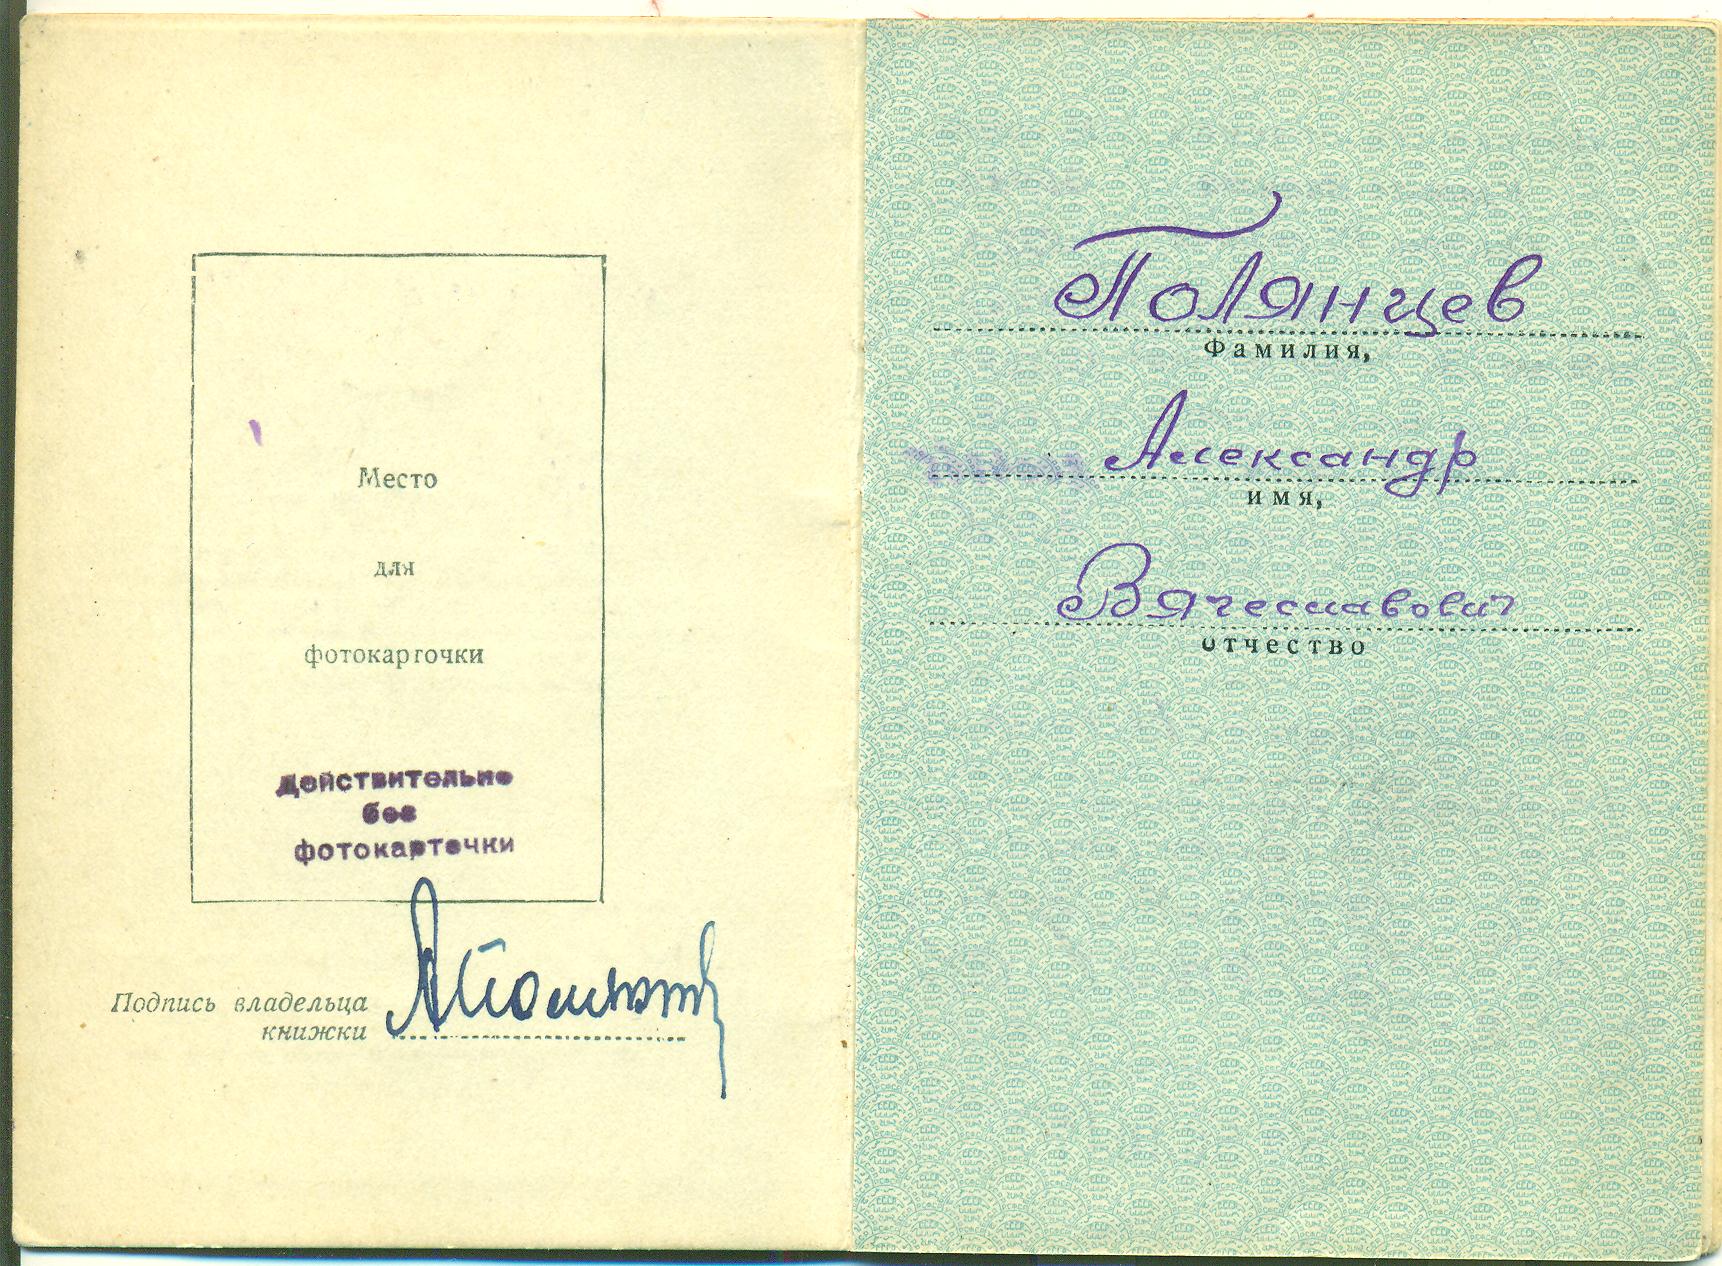 Место
для
фотокарточки
Действительно
без
фотокарточки
Подпись владельца
книжки
АПолянц
Полянцев
Фамилия,
Александр
имя,
Вячеславович
отчество